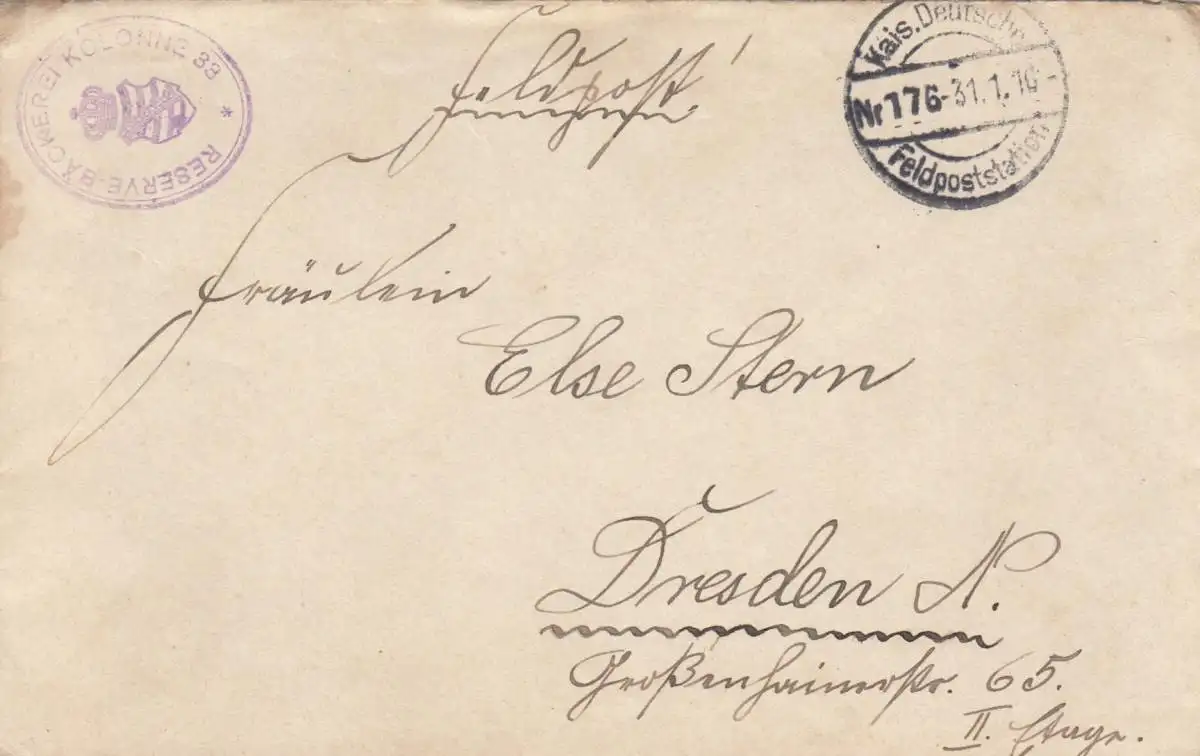 RESERVE-BÄCKEREI KOLONNE 33 *
Feldpost!
Kais. Deutsche
Nr 176 -31.1.16-
Feldpoststation
Fräulein
Else Stern
Dresden N.
Großenhainerstr. 65.
II. Etage.